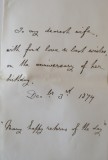 To my dearest wife,
with fond love & best wishes
on the anniversary of her
birthday.
Dec 3rd 1879
"Many happy returns of the day"